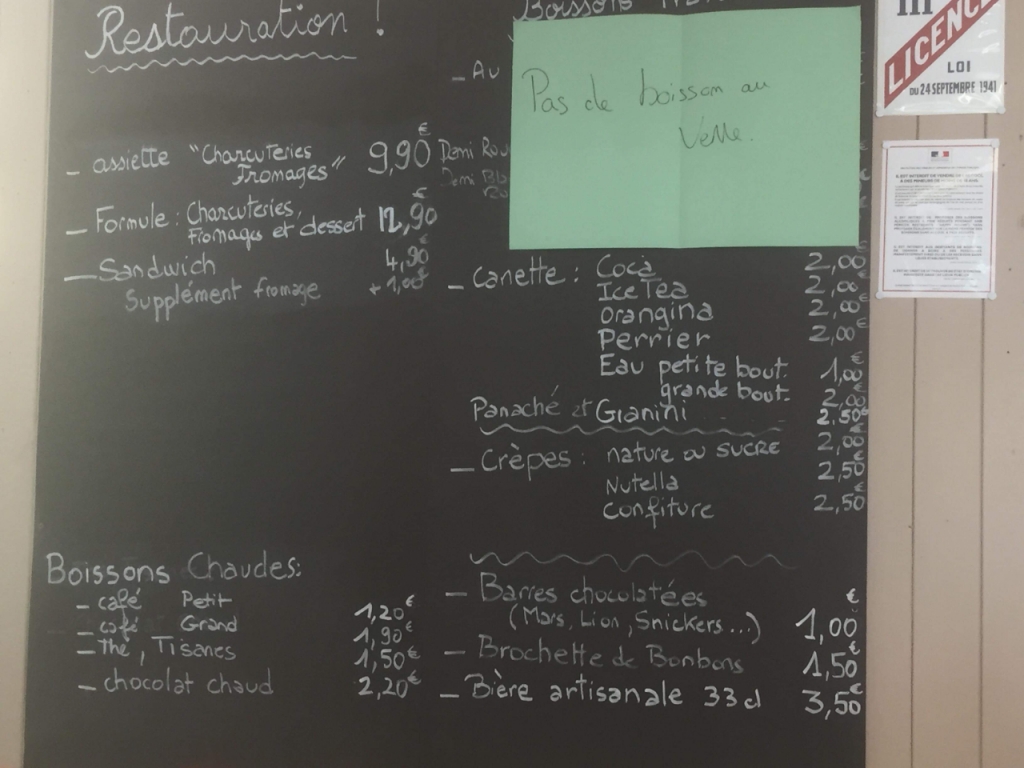 Restauration !
- assiette "Charcuteries
Fromages" 9,90 €
- Formule : Charcuteries,
Fromages et dessert 12,90 €
- Sandwich 4,90 €
Supplément fromage + 1,00 €
Boissons Chaudes:
- café Petit 1,20 €
- café Grand 1,90 €
- thé, Tisanes 1,50 €
- chocolat chaud 2,20 €
Boissons
- Au
Demi
Demi
Pas de boisson au
Verre.
- Canette : Coca 2,00 €
Ice Tea 2,00 €
Orangina 2,00 €
Perrier 2,00 €
Eau petite bout. 1,00 €
grande bout. 2,00 €
Panaché et Gianini 2,50 €
- Crèpes : nature ou sucre 2,00 €
Nutella 2,50 €
Confiture 2,50 €
- Barres chocolatées
(Mars, Lion, Snickers...) 1,00 €
- Brochette de Bonbons 1,50 €
- Bière artisanale 33 cl 3,50 €
LICENCE
LOI
DU 24 SEPTEMBRE 1941